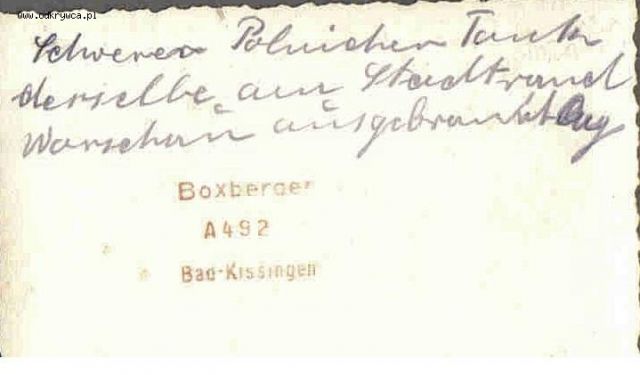 www.odkrywca.pl
Schwerer Polnicher Tank
derselbe am Stadtrand
Warschau ausgebrannt lag
Boxberger
A492
Bad-Kissingen